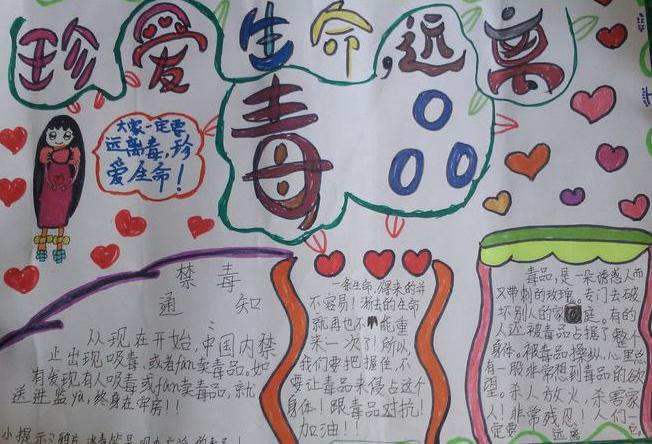 珍爱生命,远离
毒品
大家一定要
远离毒,珍
爱生命!
禁毒
通知
从现在开始,中国内禁
止出现吸毒,或者fan卖毒品。如
有发现有人吸毒或fan卖毒品,就
送进监狱,终身在牢房!!
一条生命,得来的并
不容易!消失的生命
就再也不能重
来一次了!所以,
我们要把握住,不
要让毒品来侵占这个
身体!跟毒品对抗!
加油!!
毒品,是一朵诱惑人而
又带刺的玫瑰。专门去破
坏别人的家庭。有的
人还被毒品占据了整个
身体。被毒品操纵,心里总
有一股非常想到毒品的欲
望。杀人放火,杀害家
人!非常残忍!人们一
定要远离
小提示